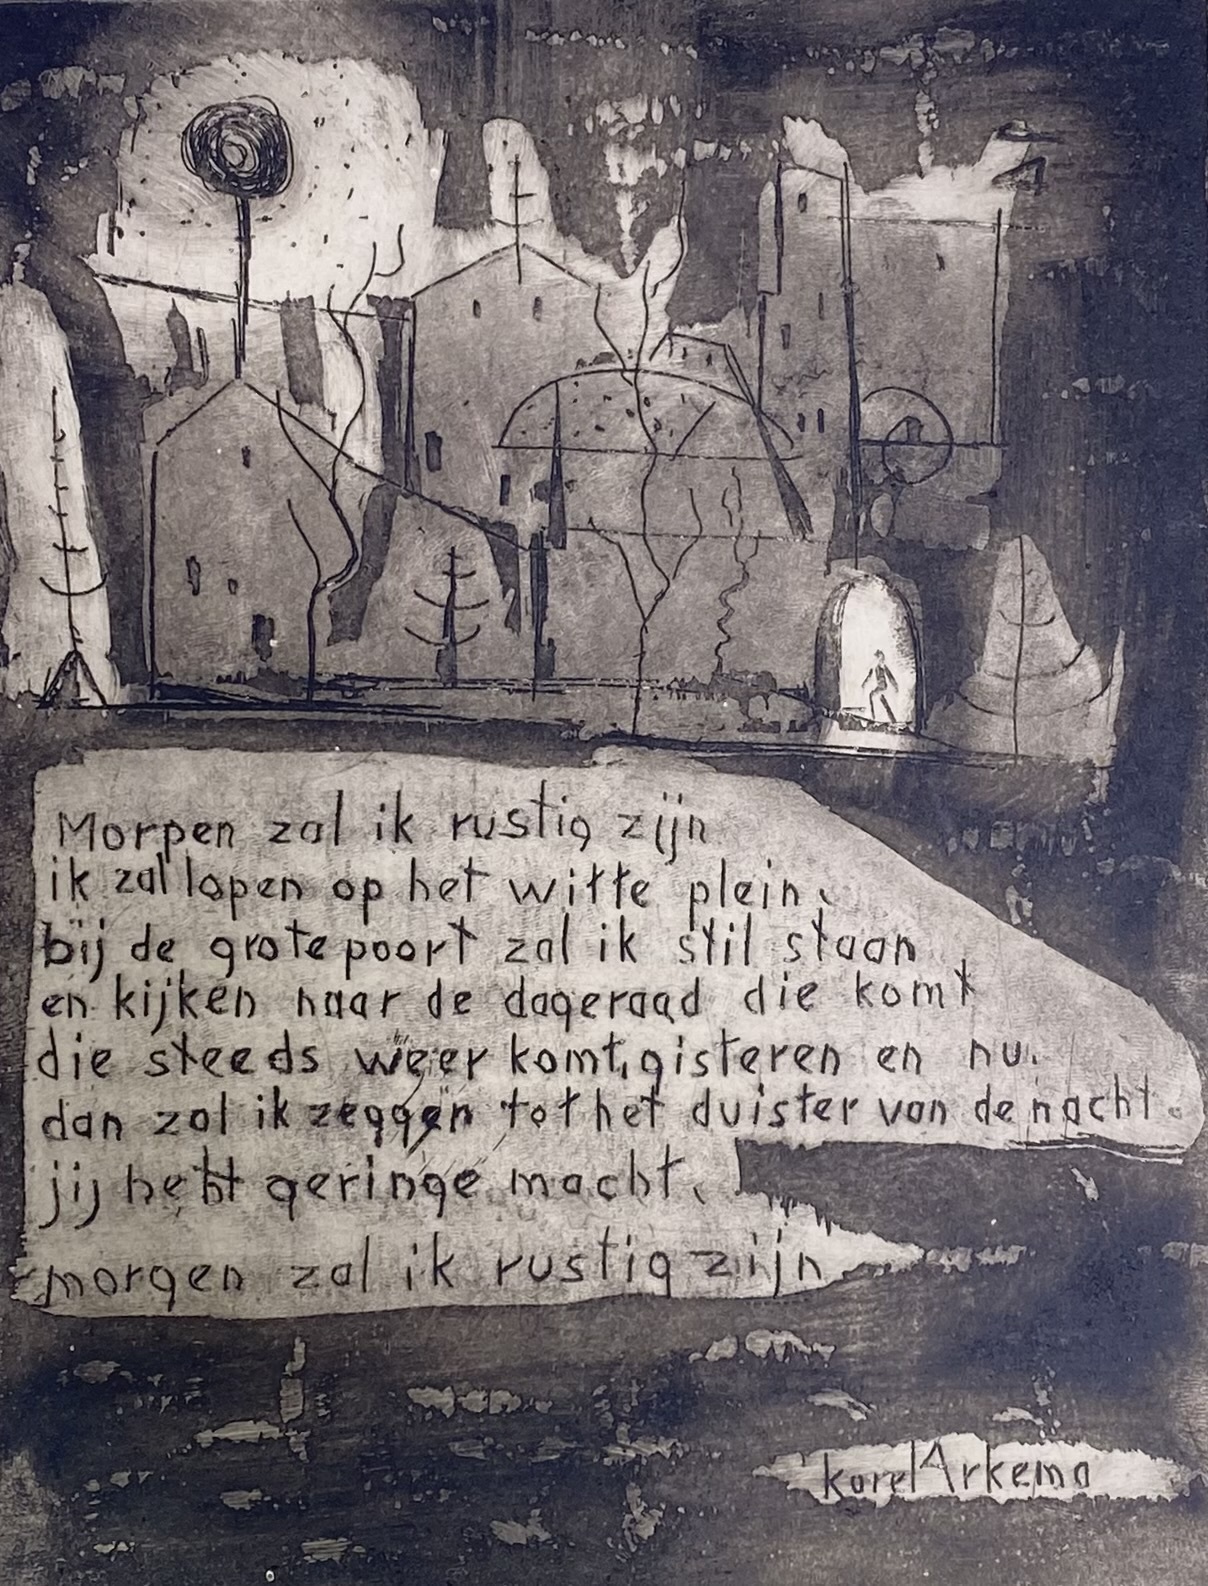 Morgen zal ik rustig zijn
ik zal lopen op het witte plein.
bij de grote poort zal ik stil staan
en kijken naar de dageraad die komt
die steeds weer komt, gisteren en nu.
dan zal ik zeggen tot het duister van de nacht.
jij hebt geringe macht.
morgen zal ik rustig zijn
karel Arkema